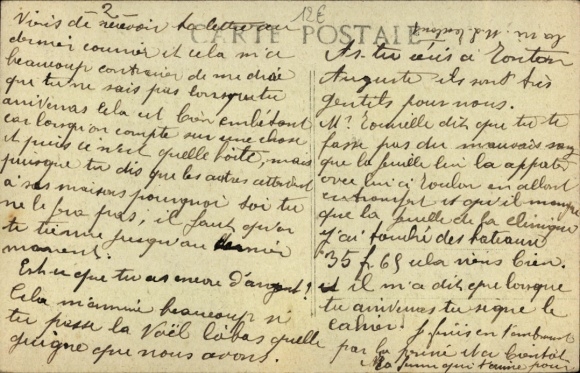 CARTE POSTALE
12€
2
Viens de recevoir ta lettre au
dernier courrier et cela m'a
beaucoup contrarier de me dire
que tu ne sais pas lorsque tu
arriveras cela est bien embêtant
car lorsqu'on compte sur une chose
et puis ce n'est quelle boite, mais
puisque tu dis que les autres attendent
à ses maisons pourquoi toi tu
ne le fra pas, il faut qu'on
te tienne jusqu'au dernier
moment.
Est-ce que tu as encore d'argent?
Cela m'ennuie beaucoup si
tu passe la Noël labas quelle
guigne que nous avons.
As-tu écris à Tonton
Auguste ils sont très
gentils pour nous.
Mr dit que tu te
fasse pas du mauvais sang
que la feuille lui la
avec lui à Toulon en allant
et qu'il manque
que la feuille de la clinique
j'ai touché des bateaux
35 f 65 cela viens bien.
et il m'a dit que lorsque
tu arriveras tu signe le
cahier. Je finis en tombant
par la et à bientôt
Ta qui t'aime pour
la vie